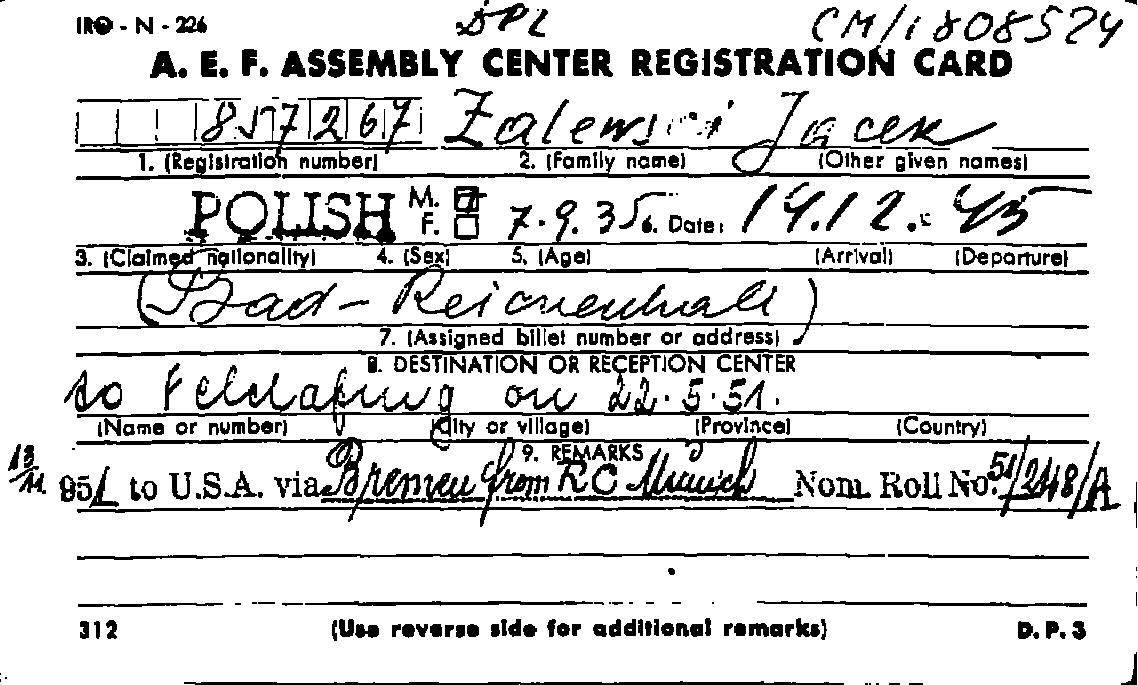 IRO - N - 226 DPL CM/1808524
A. E. F. ASSEMBLY CENTER REGISTRATION CARD
857267 Zalewski Jacek
1. (Registration number) 2. (Family name) (Other given names)
POLISH M. F. 7.9.35. Date: 14.12.45
3. (Claimed nationality) 4. (Sex) 5. (Age) (Arrival) (Departure)
(Bad-Reichenhall)
7. (Assigned billet number or address)
8. DESTINATION OR RECEPTION CENTER
to Feldafing on 22.5.51.
(Name or number) (City or village) (Province) (Country)
9. REMARKS
951 to U.S.A. via Bremen from RC Munich Nom. Roll No. 51/248/A
312 (Use reverse side for additional remarks) D. P. 3